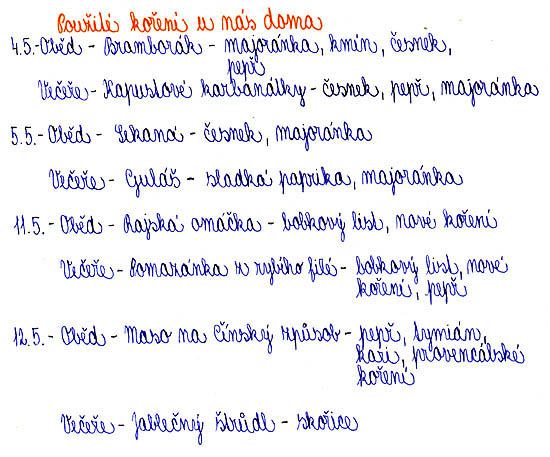 Použité koření u nás doma
4.5.-Oběd - Bramborák - majoránka, kmín, česnek,
pepř
Večeře - Kapustové karbanátky - česnek, pepř, majoránka
5.5.- Oběd - Sekaná - česnek, majoránka
Večeře - Guláš - sladká paprika, majoránka
11.5. - Oběd - Rajská omáčka - bobkový list, nové koření
Večeře - Pomazánka z rybího filé - bobkový list, nové
koření, pepř
12.5. - Oběd - Maso na Čínský způsob - pepř, tymián,
kari, provencálské
koření
Večeře - Jablečný štrůdl - skořice